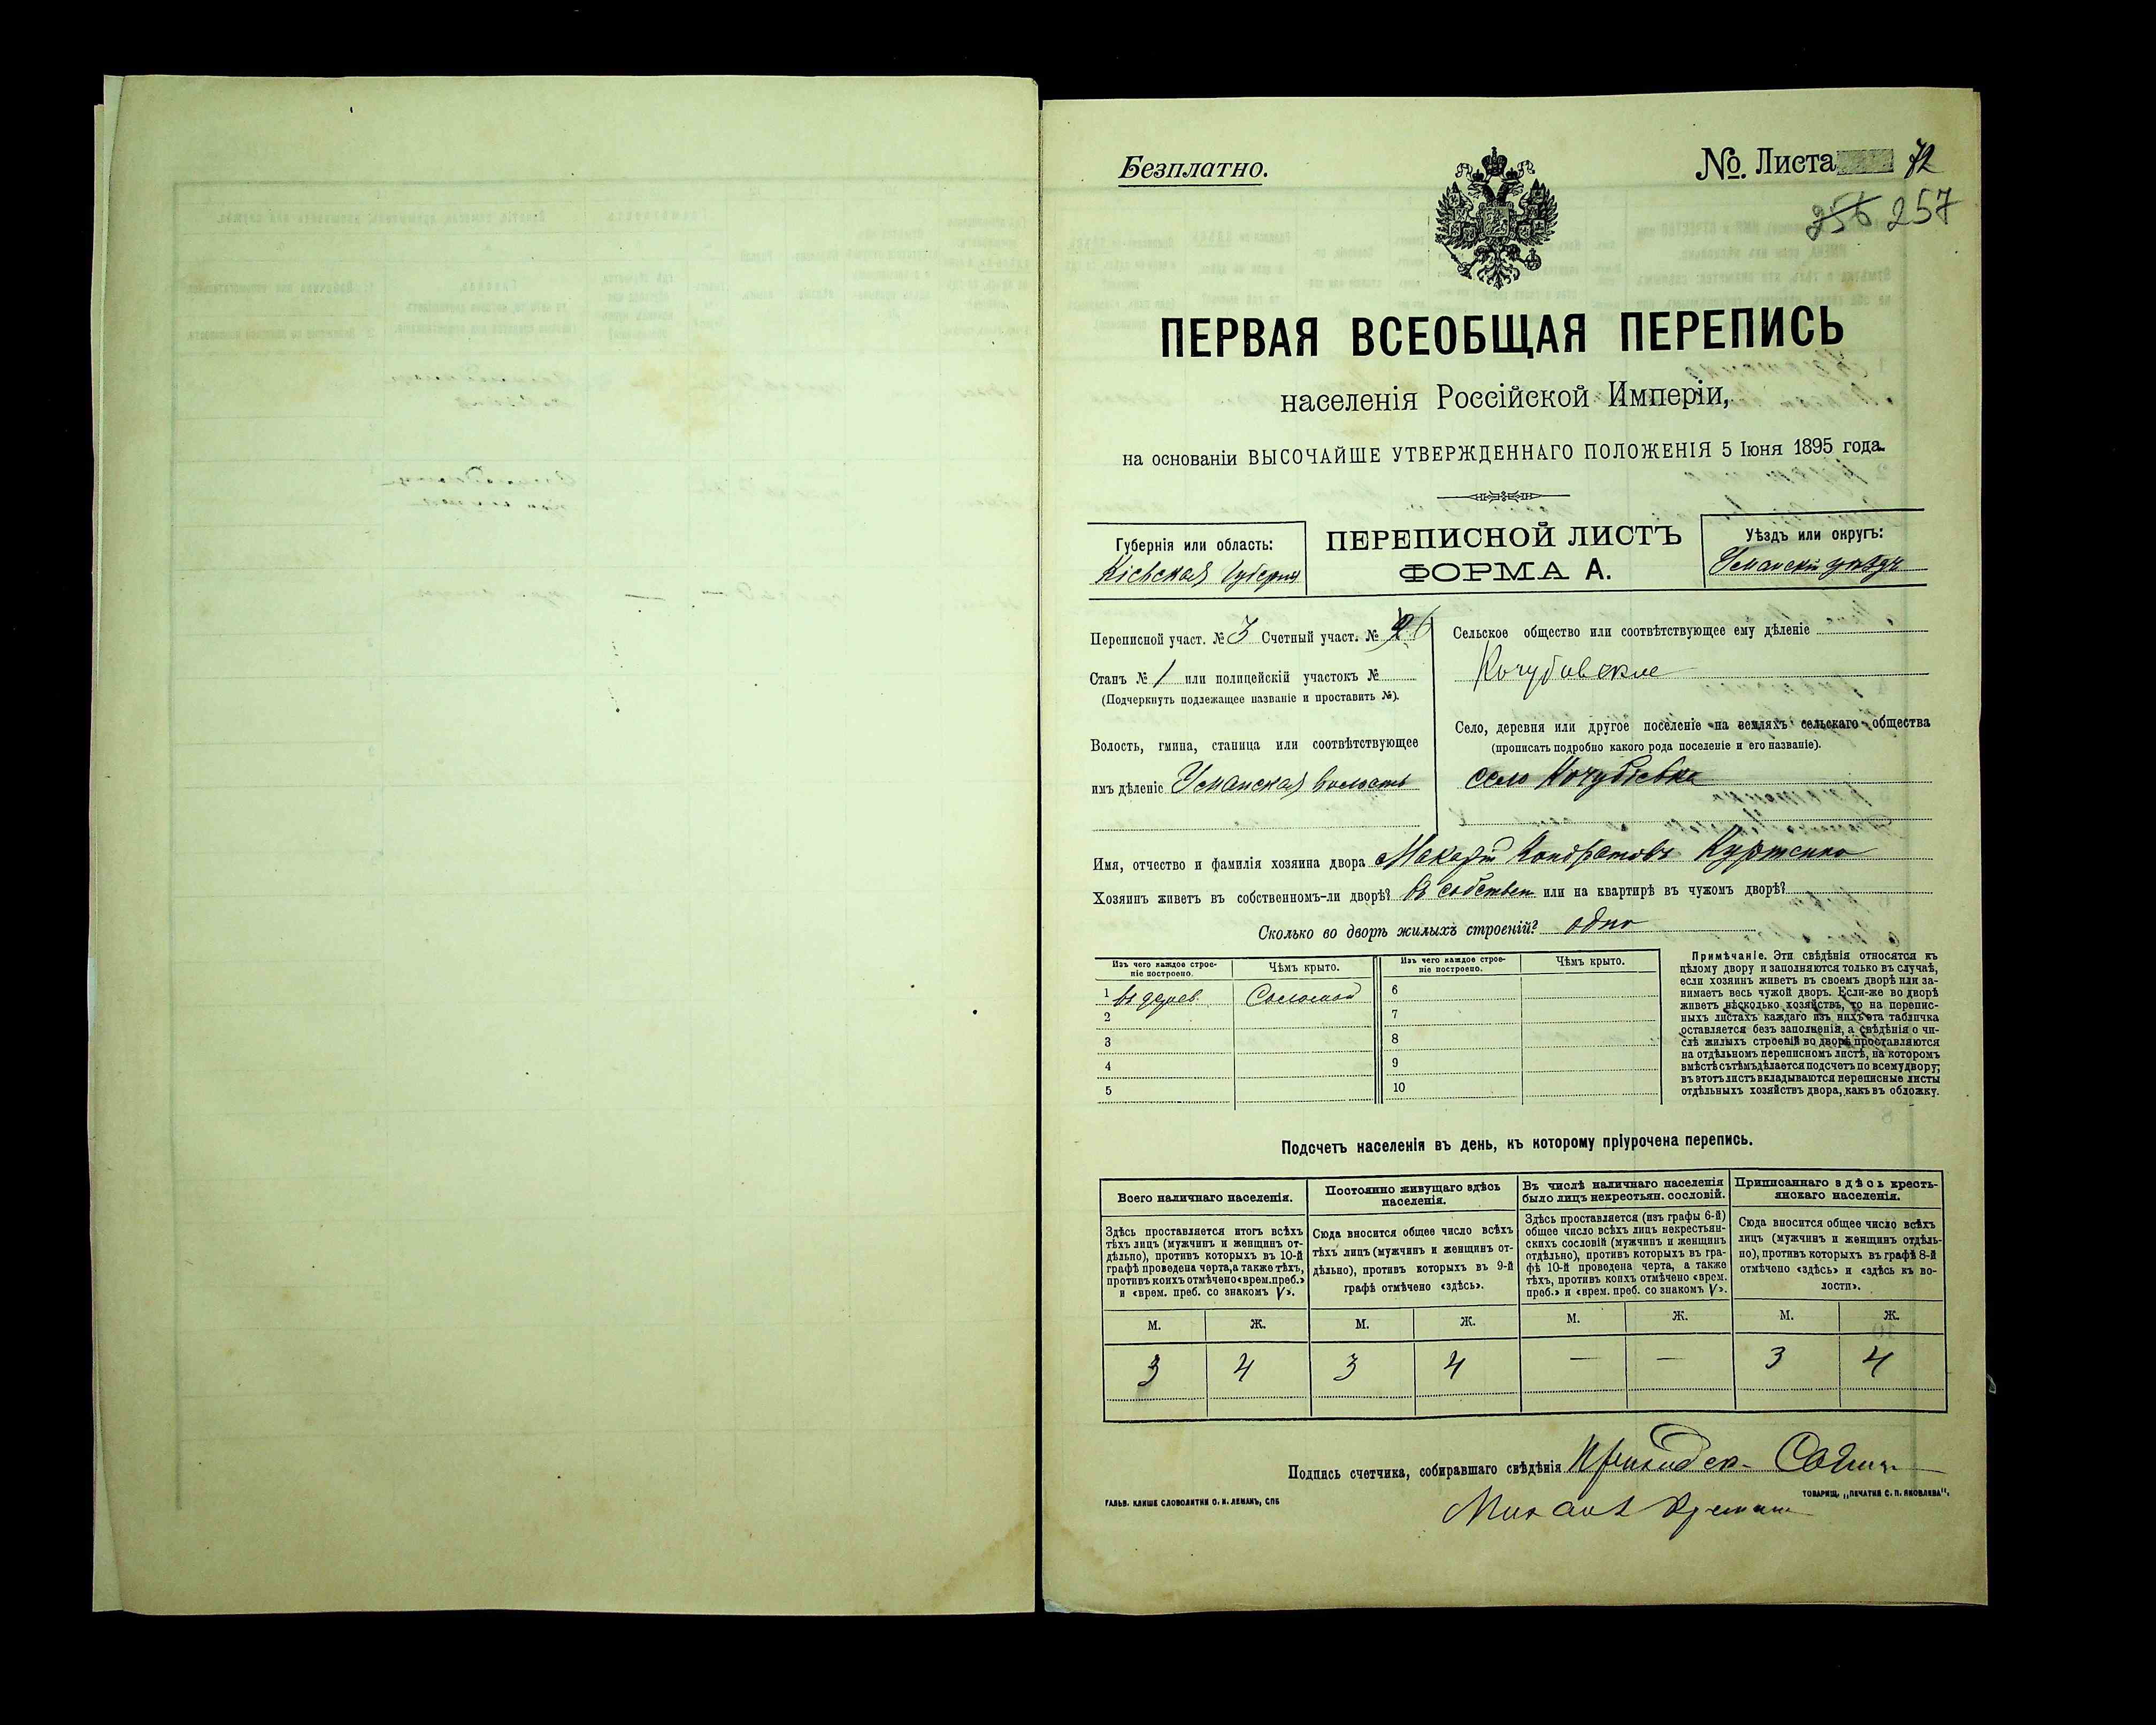 Безплатно.
№. Листа 72
256 257
ПЕРВАЯ ВСЕОБЩАЯ ПЕРЕПИСЬ
населенія Россійской Имперіи,
на основаніи ВЫСОЧАЙШЕ УТВЕРЖДЕННАГО ПОЛОЖЕНІЯ 5 Іюня 1895 года.
Губернія или область:
Кіевская Губернія
ПЕРЕПИСНОЙ ЛИСТЪ
ФОРМА А.
Уѣздъ или округъ:
Уманскій уѣздъ
Переписной участ. № 3 Счетный участ. №
Станъ № 1 или полицейскій участокъ №
(Подчеркнуть подлежащее названіе и проставить №).
Волость, гмина, станица или соотвѣтствующее
имъ дѣленіе Уманская волость
Сельское общество или соотвѣтствующее ему дѣленіе
Кочубіевское
Село, деревня или другое поселеніе на земляхъ сельскаго общества
(прописать подробно какого рода поселеніе и его названіе).
село Кочубіевка
Имя, отчество и фамилія хозяина двора Макарій Кондратовъ
Хозяинъ живетъ въ собственномъ-ли дворѣ? въ собствен или на квартирѣ въ чужомъ дворѣ?
Сколько во дворѣ жилыхъ строеній? одно
Изъ чего каждое строе-
ніе построено.
Чѣмъ крыто.
Изъ чего каждое строе-
ніе построено.
Чѣмъ крыто.
1 дерев. Соломой
2
3
4
5
6
7
8
9
10
Примѣчаніе. Эти свѣдѣнія относятся къ
цѣлому двору и заполняются только въ случаѣ,
если хозяинъ живетъ въ своемъ дворѣ или за-
нимаетъ весь чужой дворъ. Если-же во дворѣ
живетъ нѣсколько хозяйствъ, то на перепис-
ныхъ листахъ каждаго изъ нихъ эта табличка
оставляется безъ заполненія, а свѣдѣнія о чи-
слѣ жилыхъ строеній во дворѣ проставляются
на отдѣльномъ переписномъ листѣ, на которомъ
вмѣстѣ съ тѣмъ дѣлается подсчетъ по всему двору;
въ этотъ листъ вкладываются переписные листы
отдѣльныхъ хозяйствъ двора, какъ въ обложку.
Подсчетъ населенія въ день, къ которому пріурочена перепись.
Всего наличнаго населенія.
Здѣсь проставляется итогъ всѣхъ
тѣхъ лицъ (мужчинъ и женщинъ от-
дѣльно), противъ которыхъ въ 10-й
графѣ проведена черта, а также тѣхъ,
противъ коихъ отмѣчено «врем. преб.»
и «врем. преб. со знакомъ V».
Постоянно живущаго здѣсь
населенія.
Сюда вносится общее число всѣхъ
тѣхъ лицъ (мужчинъ и женщинъ от-
дѣльно), противъ которыхъ въ 9-й
графѣ отмѣчено «здѣсь».
Въ числѣ наличнаго населенія
было лицъ некрестьян. сословій.
Здѣсь проставляется (изъ графы 6-й)
общее число всѣхъ лицъ некрестьян-
скихъ сословій (мужчинъ и женщинъ
отдѣльно), противъ которыхъ въ гра-
фѣ 10-й проведена черта, а также
тѣхъ, противъ коихъ отмѣчено «врем.
преб.» и «врем. преб. со знакомъ V».
Приписаннаго здѣсь кресть-
янскаго населенія.
Сюда вносится общее число всѣхъ
лицъ (мужчинъ и женщинъ отдѣль-
но), противъ которыхъ въ графѣ 8-й
отмѣчено «здѣсь» и «здѣсь къ во-
лости».
М. Ж. М. Ж. М. Ж. М. Ж.
3 4 3 4 — — 3 4
Подпись счетчика, собиравшаго свѣдѣнія
Михаилъ
ГАЛЬВ. КЛИШЕ СЛОВОЛИТНИ О. И. ЛЕМАНЪ, СПБ
ТОВАРИЩ. „ПЕЧАТНЯ С. П. ЯКОВЛЕВА".